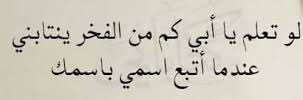 لو تعلم يا أبي كم من الفخر ينتابني
عندما أتبع اسمي باسمك